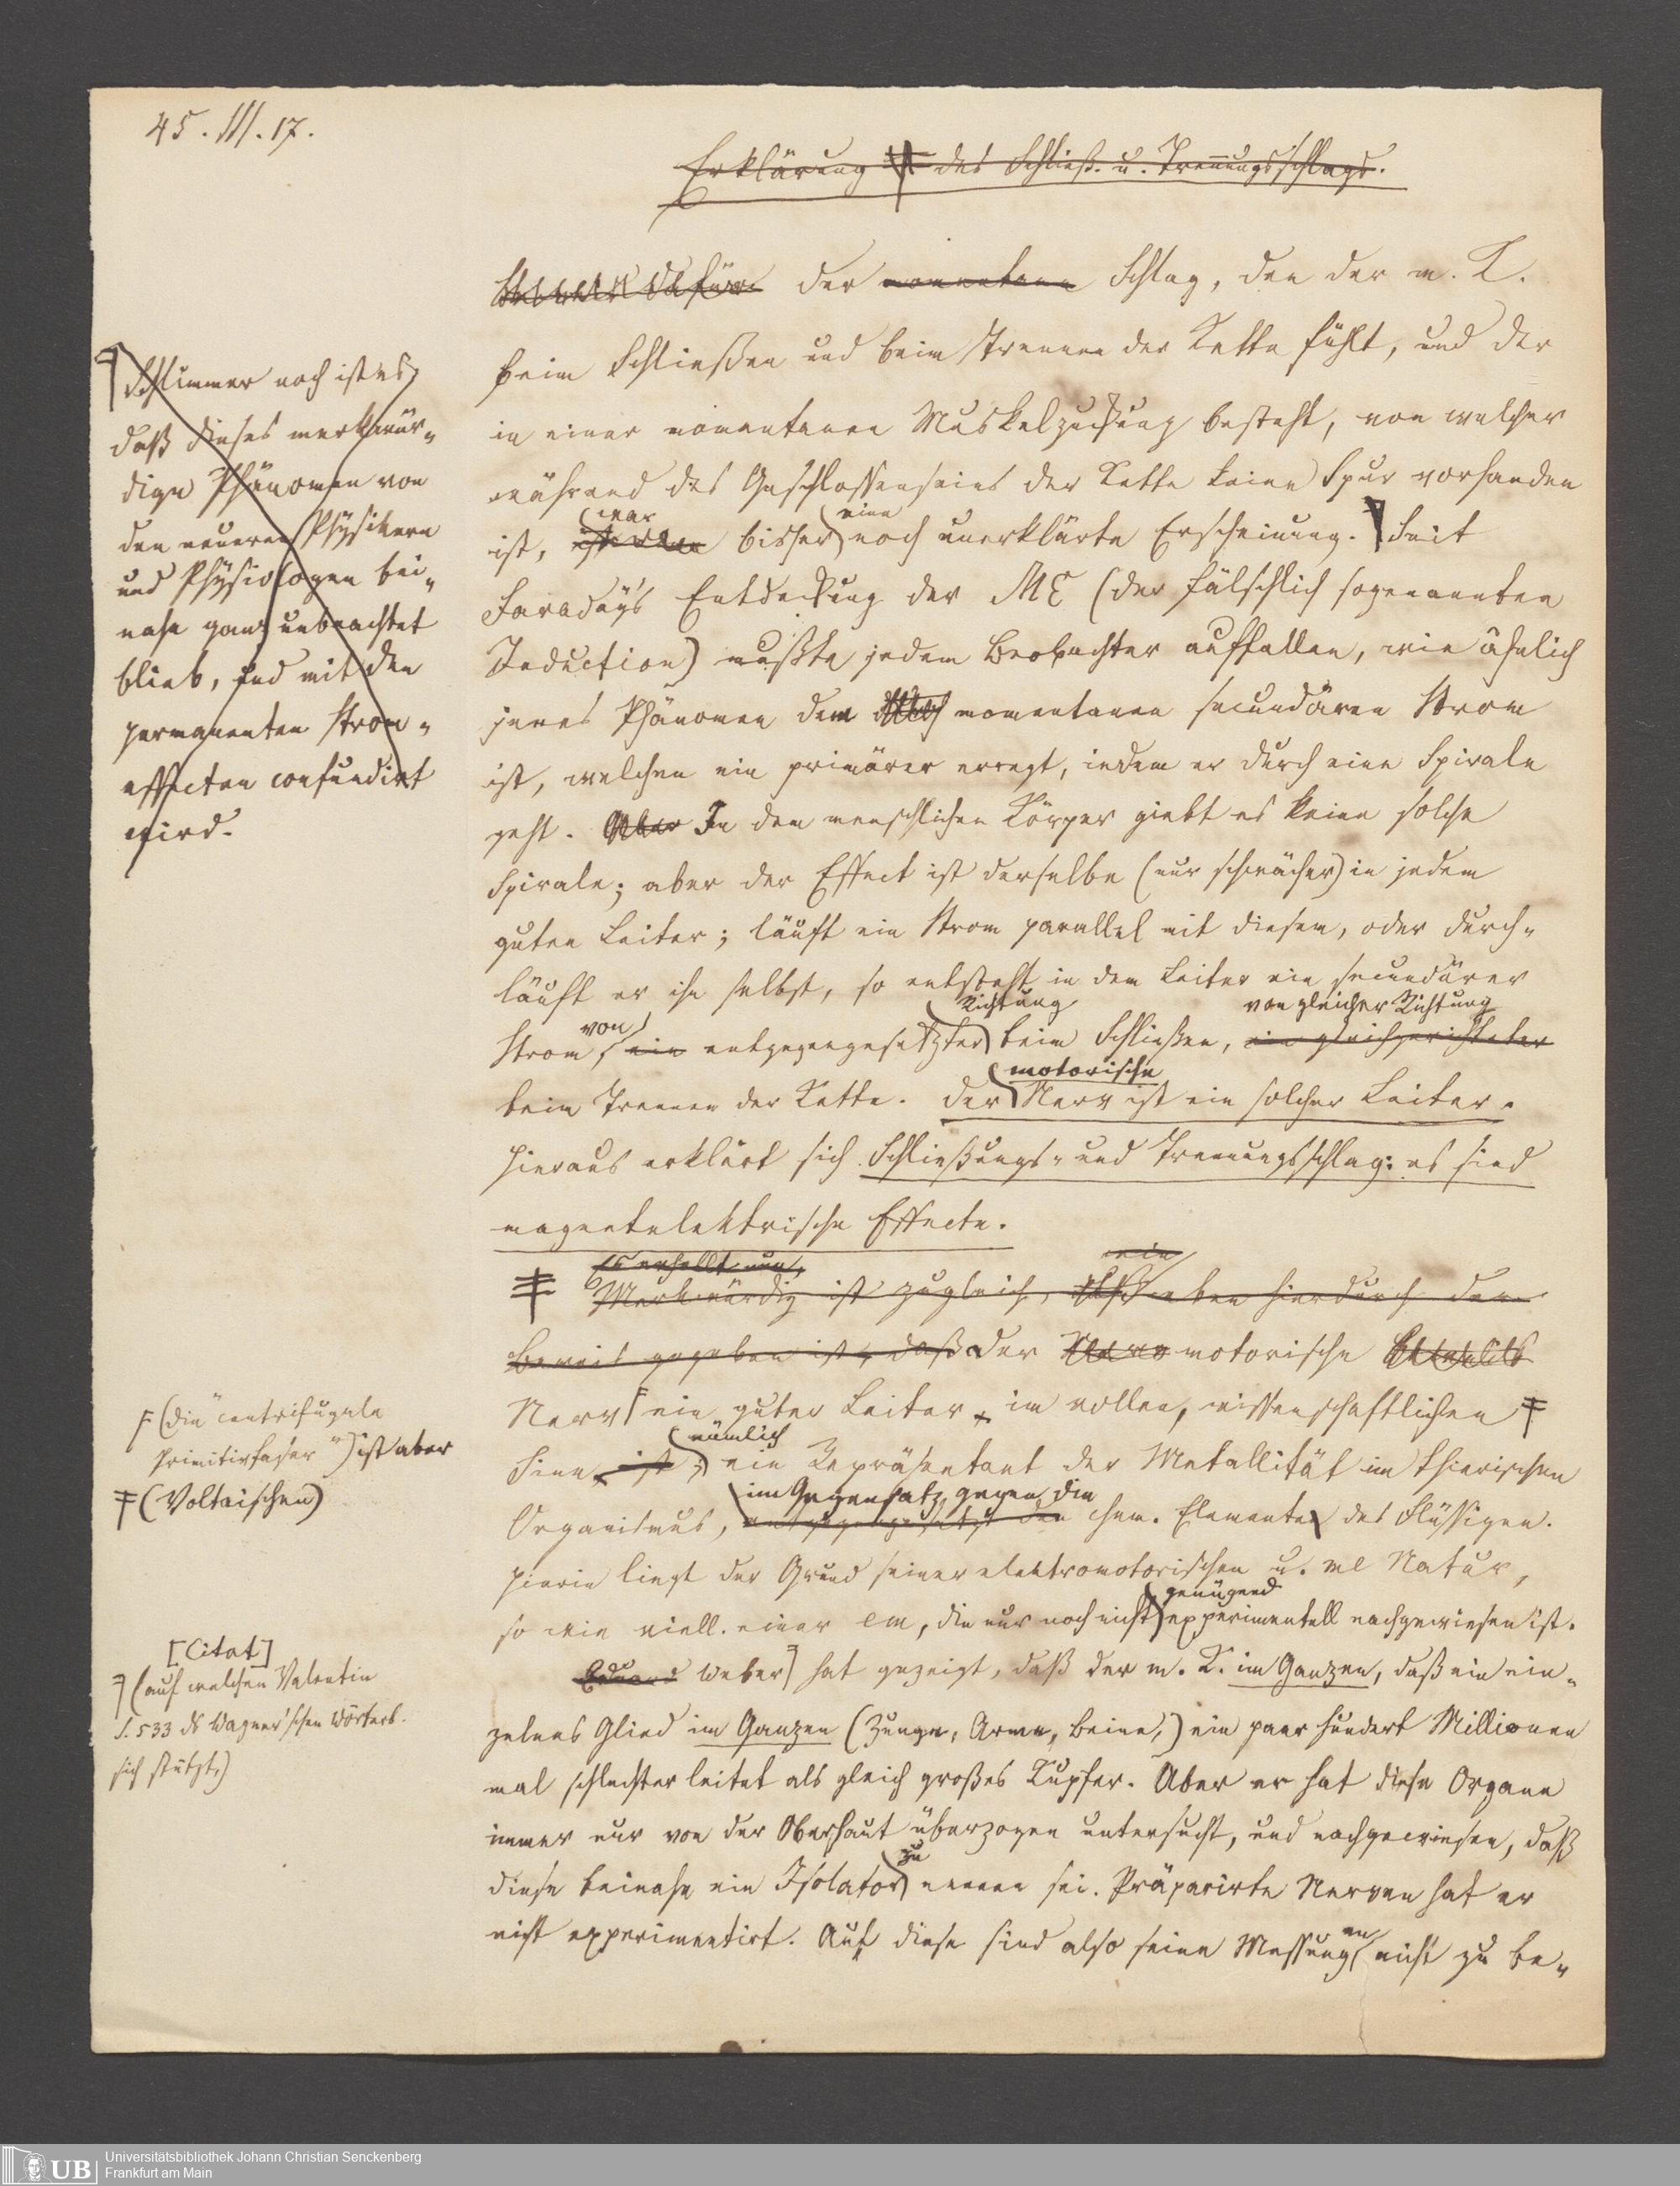 45. III. 17.
Erklärung des Schließ- u. Trennungsschlags.
der momentane Schlag, den der m. K.
beim Schließen und beim Trennen der Kette fühlt, und der
in einer momentanen Muskelzuckung besteht, von welcher
während des Geschlossenseins der Kette keine Spur vorhanden
war eine
ist, bisher noch unerklärte Erscheinung. Seit
Faraday's Entdeckung der ME (der fälschlich sogenannten
Induction) mußte jedem Beobachter auffallen, wie ähnlich
jenes Phänomen dem momentanen secundären Strom
ist, welchen ein primärer erregt, indem er durch eine Spirale
geht. Aber In dem menschlichen Körper giebt es keine solche
Spirale; aber der Effect ist derselbe (nur schwächer) in jedem
guten Leiter; läuft ein Strom parallel mit diesem, oder durch-
läuft er ihn selbst, so entsteht in dem Leiter ein secundärer
von Richtung von gleicher Richtung
Strom, ein entgegengesetzter beim Schließen, ein gleichgerichteter
motorische
beim Trennen der Kette. Der Nerv ist ein solcher Leiter.
Hieraus erklärt sich Schließungs- und Trennungsschlag: es sind
magnetelektrische Effecte.
Es erhellt nun, wie
Merkwürdig ist zugleich, daß eben hierdurch der
Beweis gegeben ist, daß der Nerv motorische
Nerv ein guter Leiter, im vollen, wissenschaftlichen
nämlich
Sinn ist, ein Repräsentant der Metallität im thierischen
im Gegensatz gegen die
Organismus, entgegengesetzt den chem. Elementen des Flüssigen.
Hierin liegt der Grund seiner elektromotorischen u. me Natur,
genügend
so wie viell. einer em, die nur noch nicht experimentell nachgewiesen ist.
Eduard Weber hat gezeigt, daß der m. K. im Ganzen, daß ein ein-
zelnes Glied im Ganzen (Zunge, Arme, Beine,) ein paar hundert Millionen
mal schlechter leitet als gleich großes Kupfer. Aber er hat diese Organe
immer nur von der Oberhaut überzogen untersucht, und nachgewiesen, daß
zu
diese beinahe ein Isolator nennen sei. Präparirte Nerven hat er
en
nicht experimentirt. Auf diese sind also seine Messung nicht zu be-
Schlimmer noch ist es,
daß dieses merkwür-
dige Phänomen von
den neueren Physikern
und Physiologen bei-
nahe ganz unbeachtet
blieb, und mit den
permanenten Strom-
effecten confundirt
wird.
(die "centrifugale
Primitivfaser") ist aber
(Voltaischen)
[Citat]
(auf welchen Valentin
S. 533 ds Wagner'schen Wörterb.
sich stützt,)
UB
Universitätsbibliothek Johann Christian Senckenberg
Frankfurt am Main